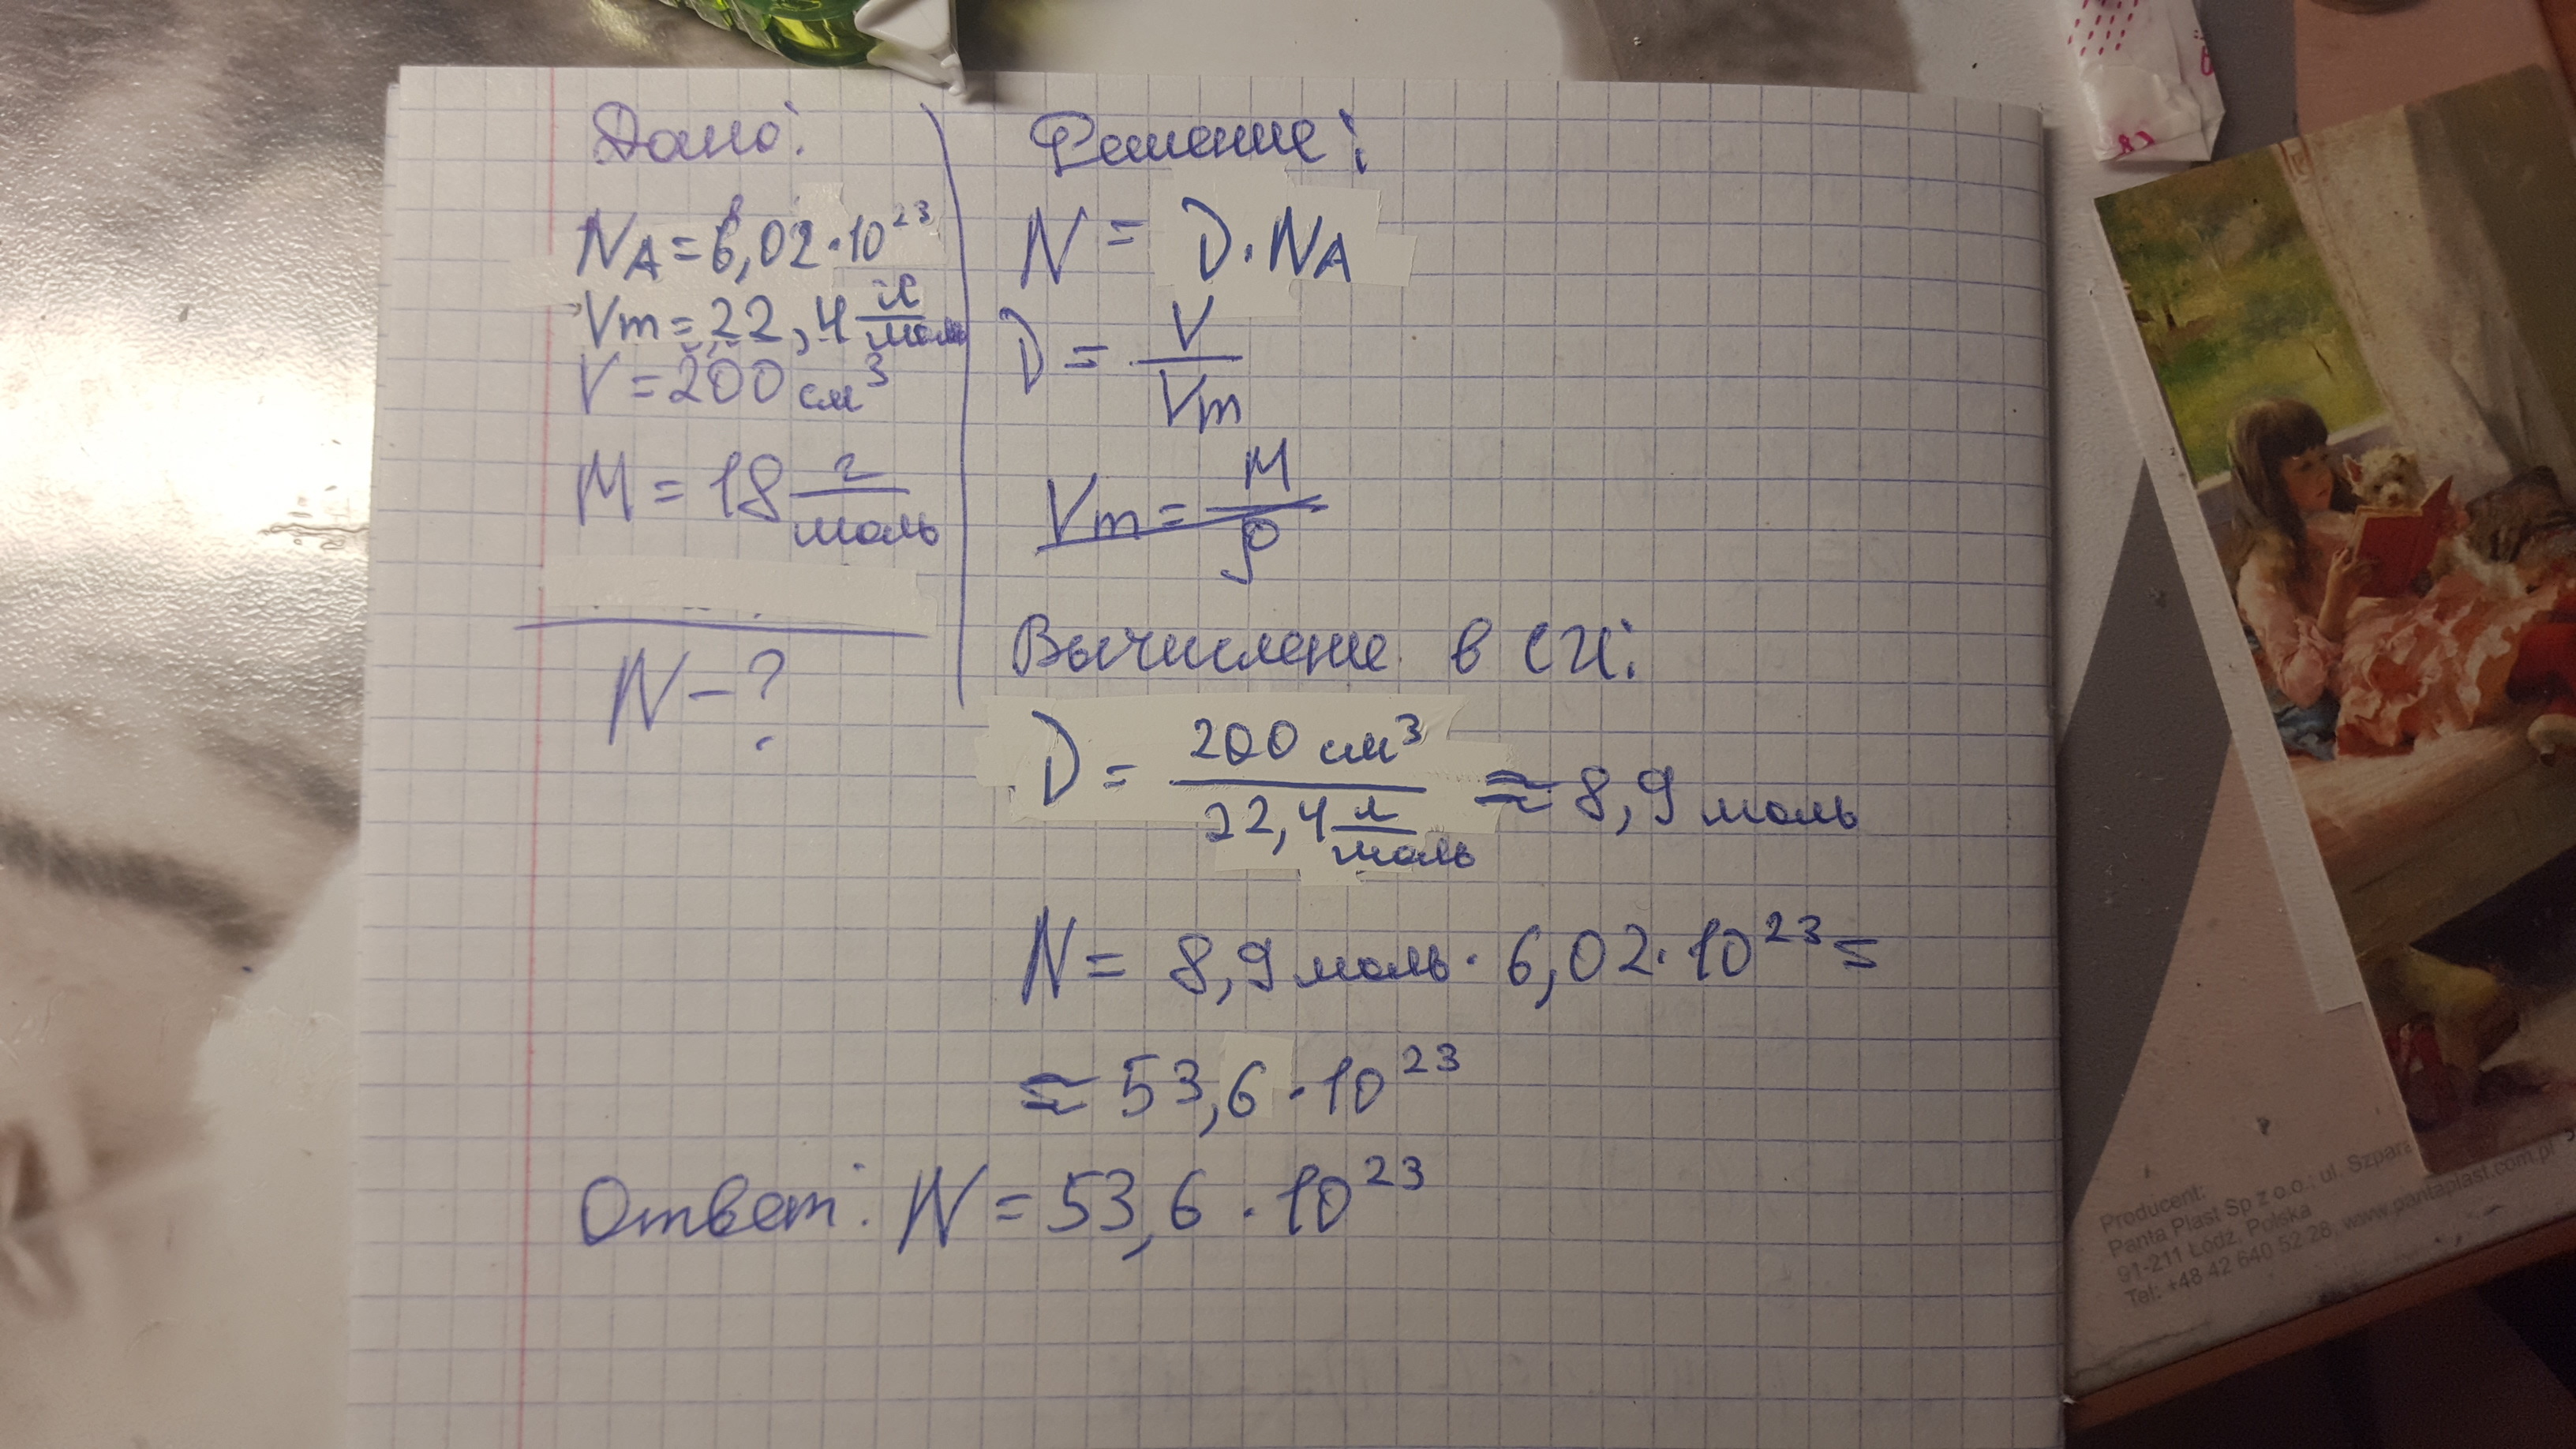 Дано:
NA = 6,02 · 10²³
Vm = 22,4 л/моль
V = 200 см³
M = 18 г/моль
N - ?
Решение:
N = D · NA
D = V/Vm
Vm = M/ρ
Вычисление в СИ:
D = 200 см³ / 22,4 л/моль ≈ 8,9 моль
N = 8,9 моль · 6,02 · 10²³ =
≈ 53,6 · 10²³
Ответ: N = 53,6 · 10²³
Producent:
Panta Plast Sp z o.o.; ul.
91-211 Łódź, Polska
Tel: +48 42 640 52 28, www.pantaplast.com.pl